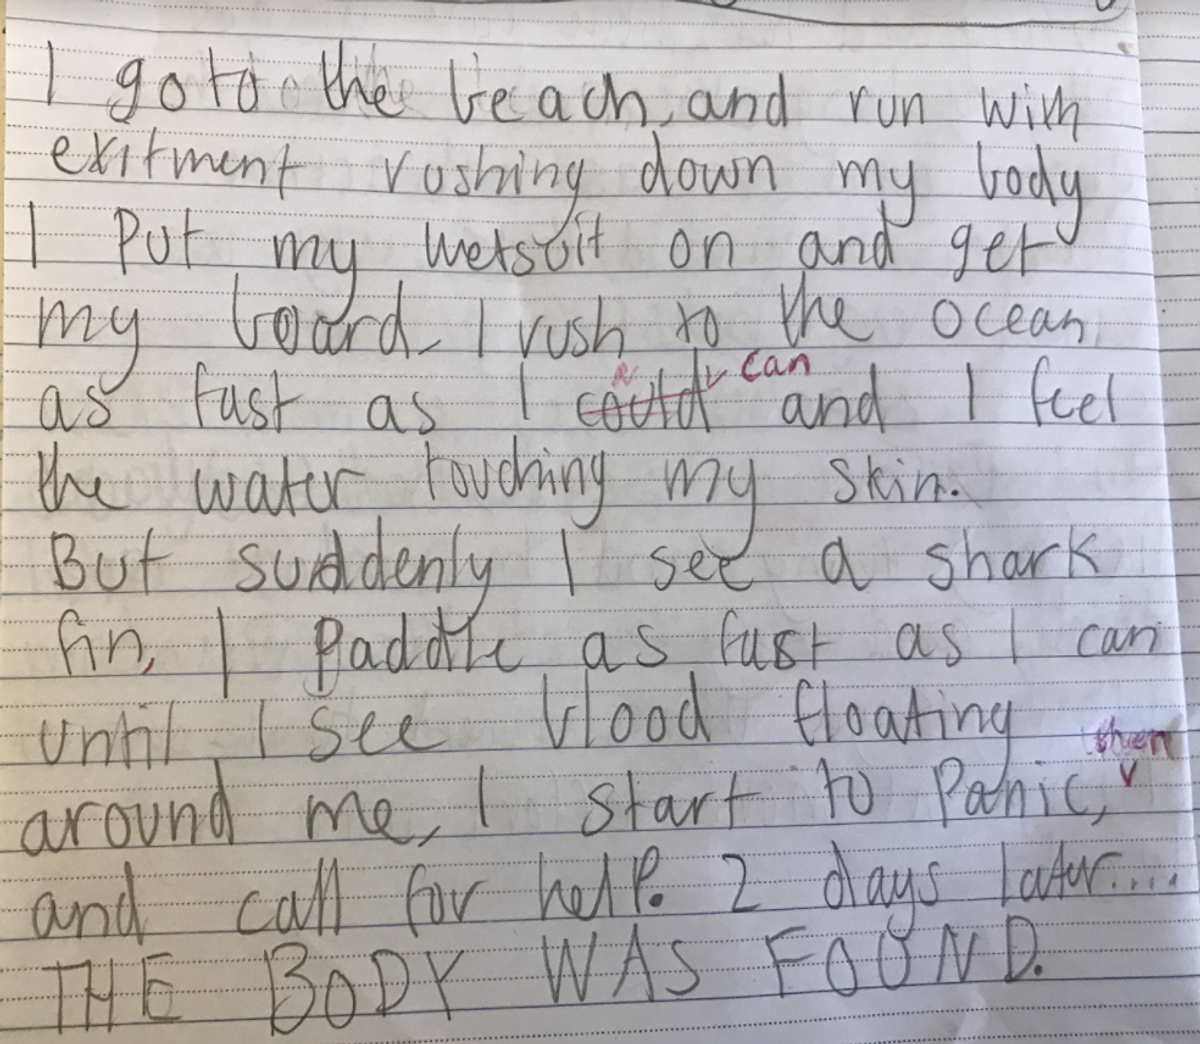 I go to the beach, and run with
exitment rushing down my body
I put my wetsuit on and get
my board, I rush to the ocean
as fast as I could can and I feel
the water touching my skin.
But suddenly I see a shark
fin, I Paddle as fast as I can
until I see blood floating
around me, I start to Panic, then
and call for help. 2 days later....
THE BODY WAS FOUND.